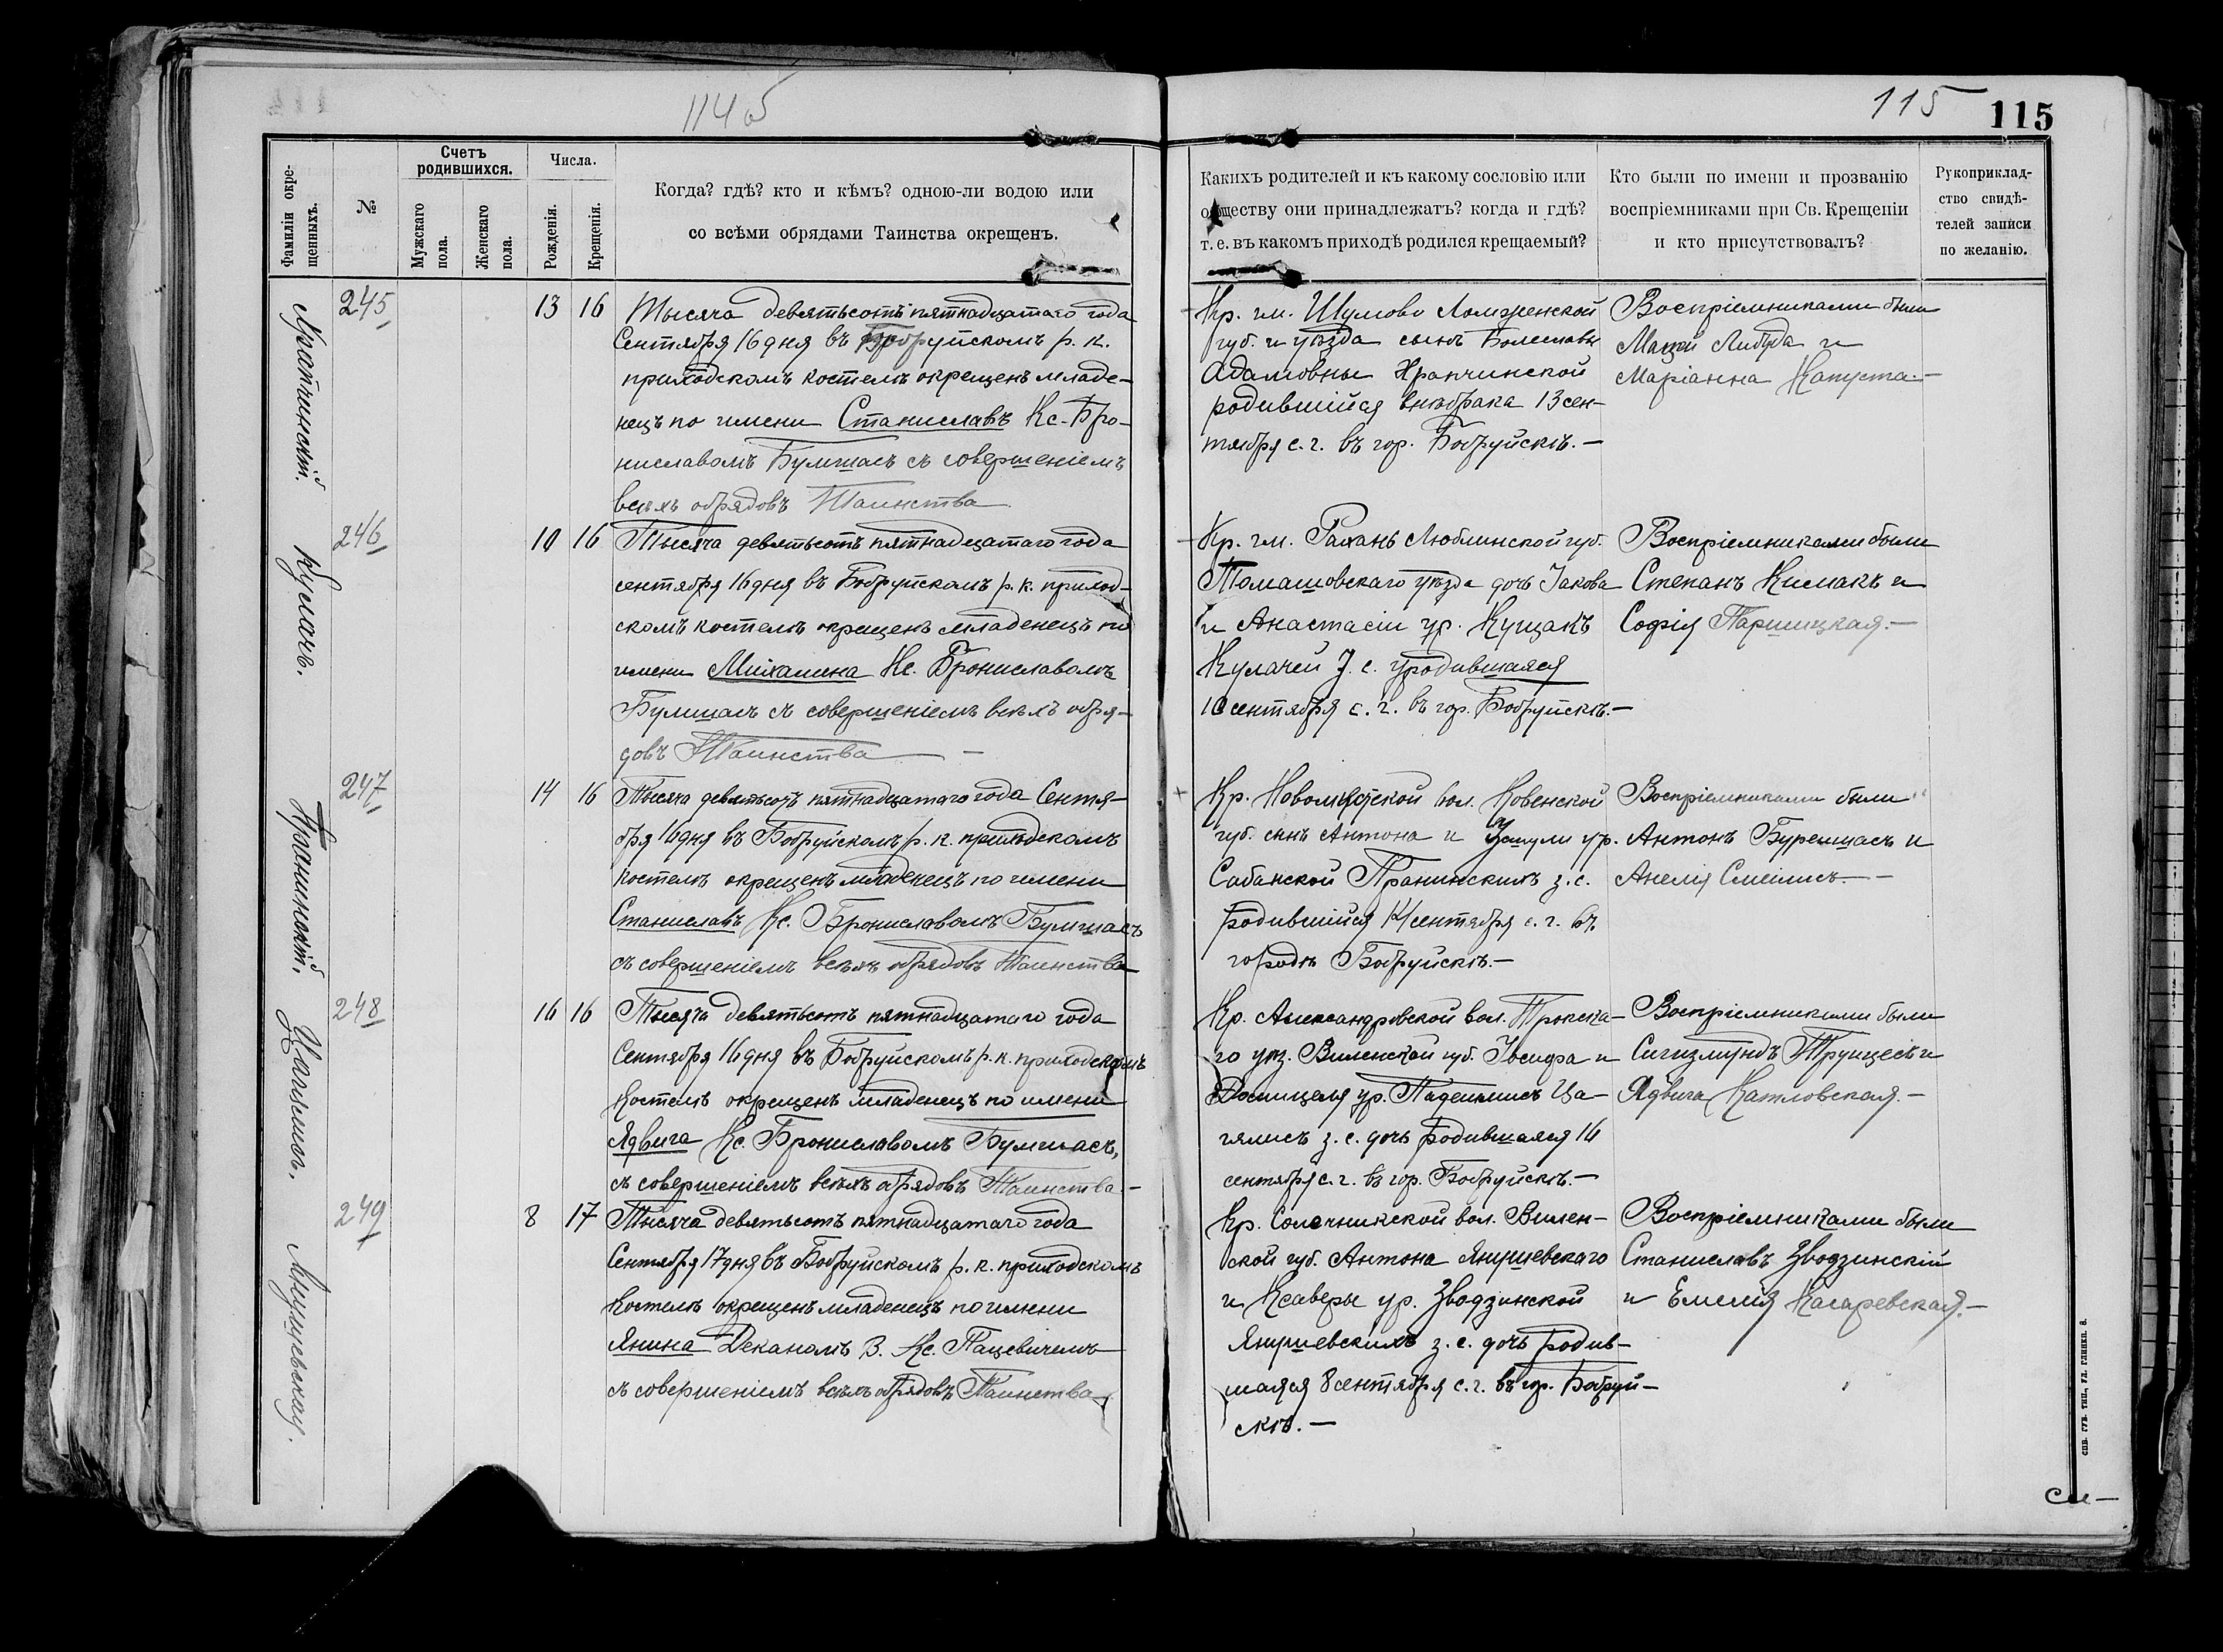 114 б
115
115
Фамиліи окре-
щенныхъ.
№
Счетъ
родившихся.
Мужскаго
пола.
Женскаго
пола.
Числа.
Рожденія.
Крещенія.
Когда? гдѣ? кто и кѣмъ? одною-ли водою или
со всѣми обрядами Таинства окрещенъ.
Какихъ родителей и къ какому сословію или
обществу они принадлежатъ? когда и гдѣ?
т. е. въ какомъ приходѣ родился крещаемый?
Кто были по имени и прозванію
воспріемниками при Св. Крещеніи
и кто присутствовалъ?
Рукоприклад-
ство свидѣ-
телей записи
по желанію.
245
13 16
Тысяча девятьсотъ пятнадцатаго года
Сентября 16 дня въ Бобруйскомъ р. к.
приходскомъ костелѣ окрещенъ младе-
нецъ по имени Станиславъ Кс. Бро-
ниславомъ Бумшасъ съ совершеніемъ
всѣхъ обрядовъ Таинства
Кр. гм. Шумово Ломженской
губ. и уѣзда сынъ Болеславы
Адамовны Храпчинской
родившійся внѣбрака 13 сен-
тября с. г. въ гор. Бобруйскѣ.—
Воспріемниками были
Мацей Либуда и
Маріанна Капуста.—
246
Кулачъ.
10 16
Тысяча девятьсотъ пятнадцатаго года
сентября 16 дня въ Бобруйскомъ р. к. приход-
скомъ костелѣ окрещенъ младенецъ по
имени Михалина Кс. Брониславомъ
Бумшасъ съ совершеніемъ всѣхъ обря-
довъ Таинства —
Кр. гм. Рахань Люблинской губ.
Томашовскаго уѣзда дочь Іакова
и Анастасіи ур. Кущакъ
Кулачей з. с. уродившаяся
10 сентября с. г. въ гор. Бобруйскѣ.—
Воспріемниками были
Степанъ Кимакъ и
Софія Паришцкая.—
247
Пранинскій.
14 16
Тысяча девятьсотъ пятнадцатаго года Сентя-
бря 16 дня въ Бобруйскомъ р. к. приходскомъ
костелѣ окрещенъ младенецъ по имени
Станиславъ Кс. Брониславомъ Бумшасъ
съ совершеніемъ всѣхъ обрядовъ Таинства
вол. Ковенской
губ. сынъ Антона и ур.
Сабанской Пранинскихъ з. с.
родившійся 14 сентября с. г. въ
городѣ Бобруйскѣ.—
Воспріемниками были
Антонъ Буремшасъ и
Анелія
248
16 16
Тысяча девятьсотъ пятнадцатаго года
Сентября 16 дня въ Бобруйскомъ р. к. приходскомъ
костелѣ окрещенъ младенецъ по имени
Ядвига Кс. Брониславомъ Бумшасъ,
съ совершеніемъ всѣхъ обрядовъ Таинства.—
Кр. Александровской вол. Трокска-
го уѣз. Виленской губ. Іосифа и
ур. Ца-
гялисъ з. с. дочь родившаяся 16
сентября с. г. въ гор. Бобруйскѣ.—
Воспріемниками были
Сигизмундъ и
Ядвига Катловская.—
249
8 17
Тысяча девятьсотъ пятнадцатаго года
Сентября 17 дня въ Бобруйскомъ р. к. приходскомъ
костелѣ окрещенъ младенецъ по имени
Янина Деканомъ В. Кс. Пацевичемъ
съ совершеніемъ всѣхъ обрядовъ Таинства
Кр. Солечникской вол. Вилен-
ской губ. Антона Янушевскаго
и Ксаверы ур. Зводзинской
Янушевскихъ з. с. дочь родив-
шаяся 8 сентября с. г. въ гор. Бобруй-
скѣ.—
Воспріемниками были
Станиславъ Зводзинскій
и Емилія
СПБ. ГУБ. ТИП., УЛ. ГЛИНКИ. 8.